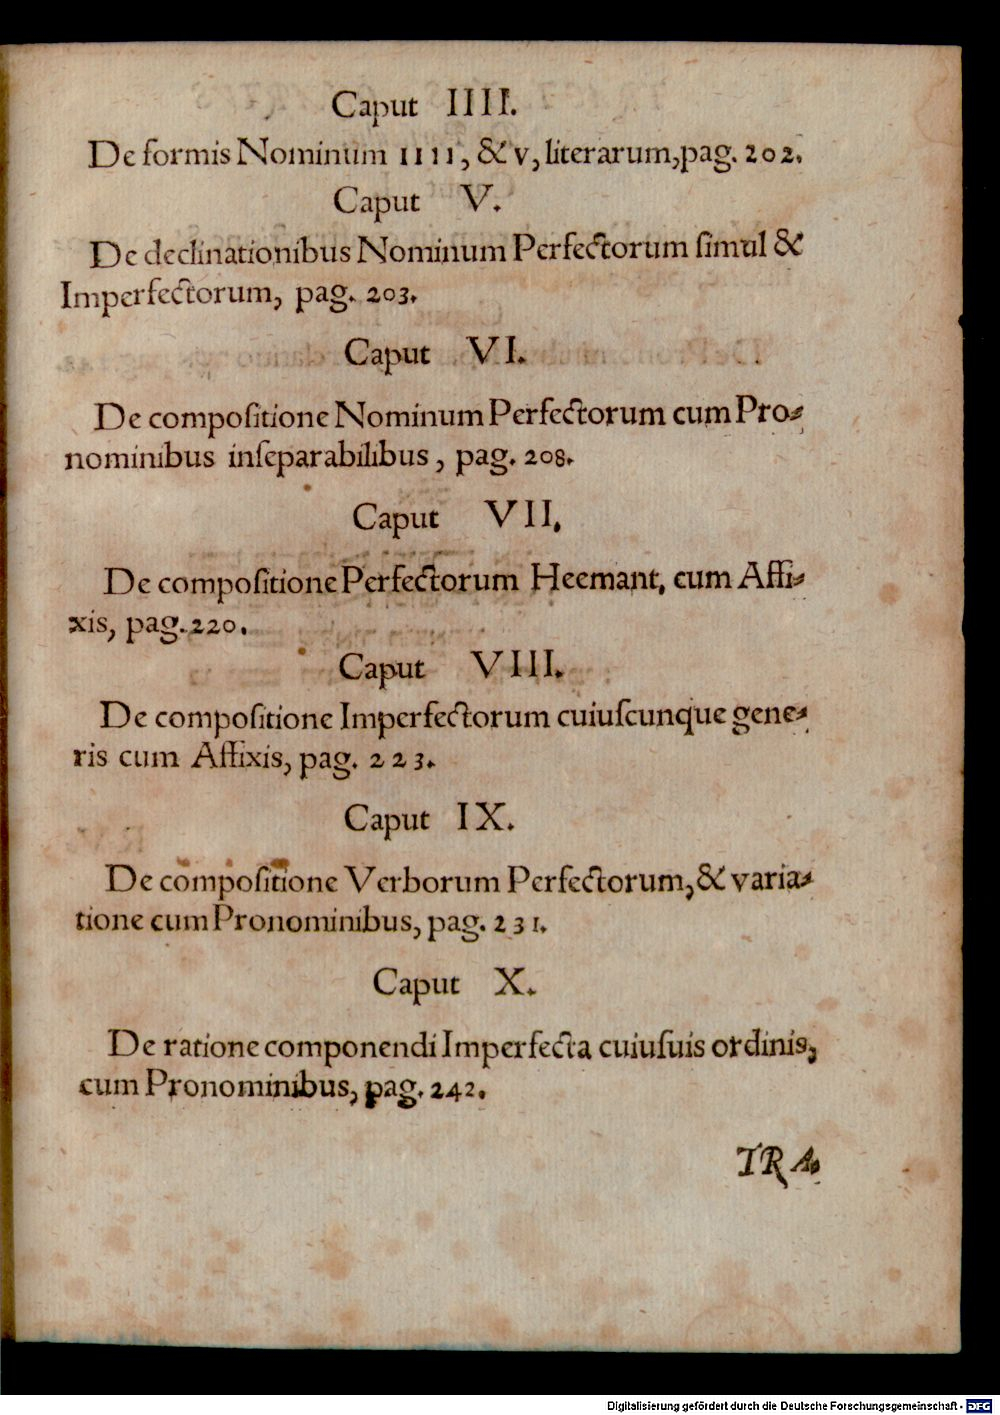 Caput IIII.
De formis Nominum IIII, & v, literarum, pag. 202.
Caput V.
De declinationibus Nominum Perfectorum ſimul &
Imperfectorum, pag. 203.
Caput VI.
De compoſitione Nominum Perfectorum cum Pro-
nominibus inſeparabilibus, pag. 208.
Caput VII.
De compoſitione Perfectorum Heemant, cum Affi-
xis, pag. 220.
Caput VIII.
De compoſitione Imperfectorum cuiuſcunque gene-
ris cum Affixis, pag. 223.
Caput IX.
De compoſitione Verborum Perfectorum, & varia-
tione cum Pronominibus, pag. 231.
Caput X.
De ratione componendi Imperfecta cuiuſuis ordinis,
cum Pronominibus, pag. 242.
TRA-
Digitalisierung gefördert durch die Deutsche Forschungsgemeinschaft - DFG